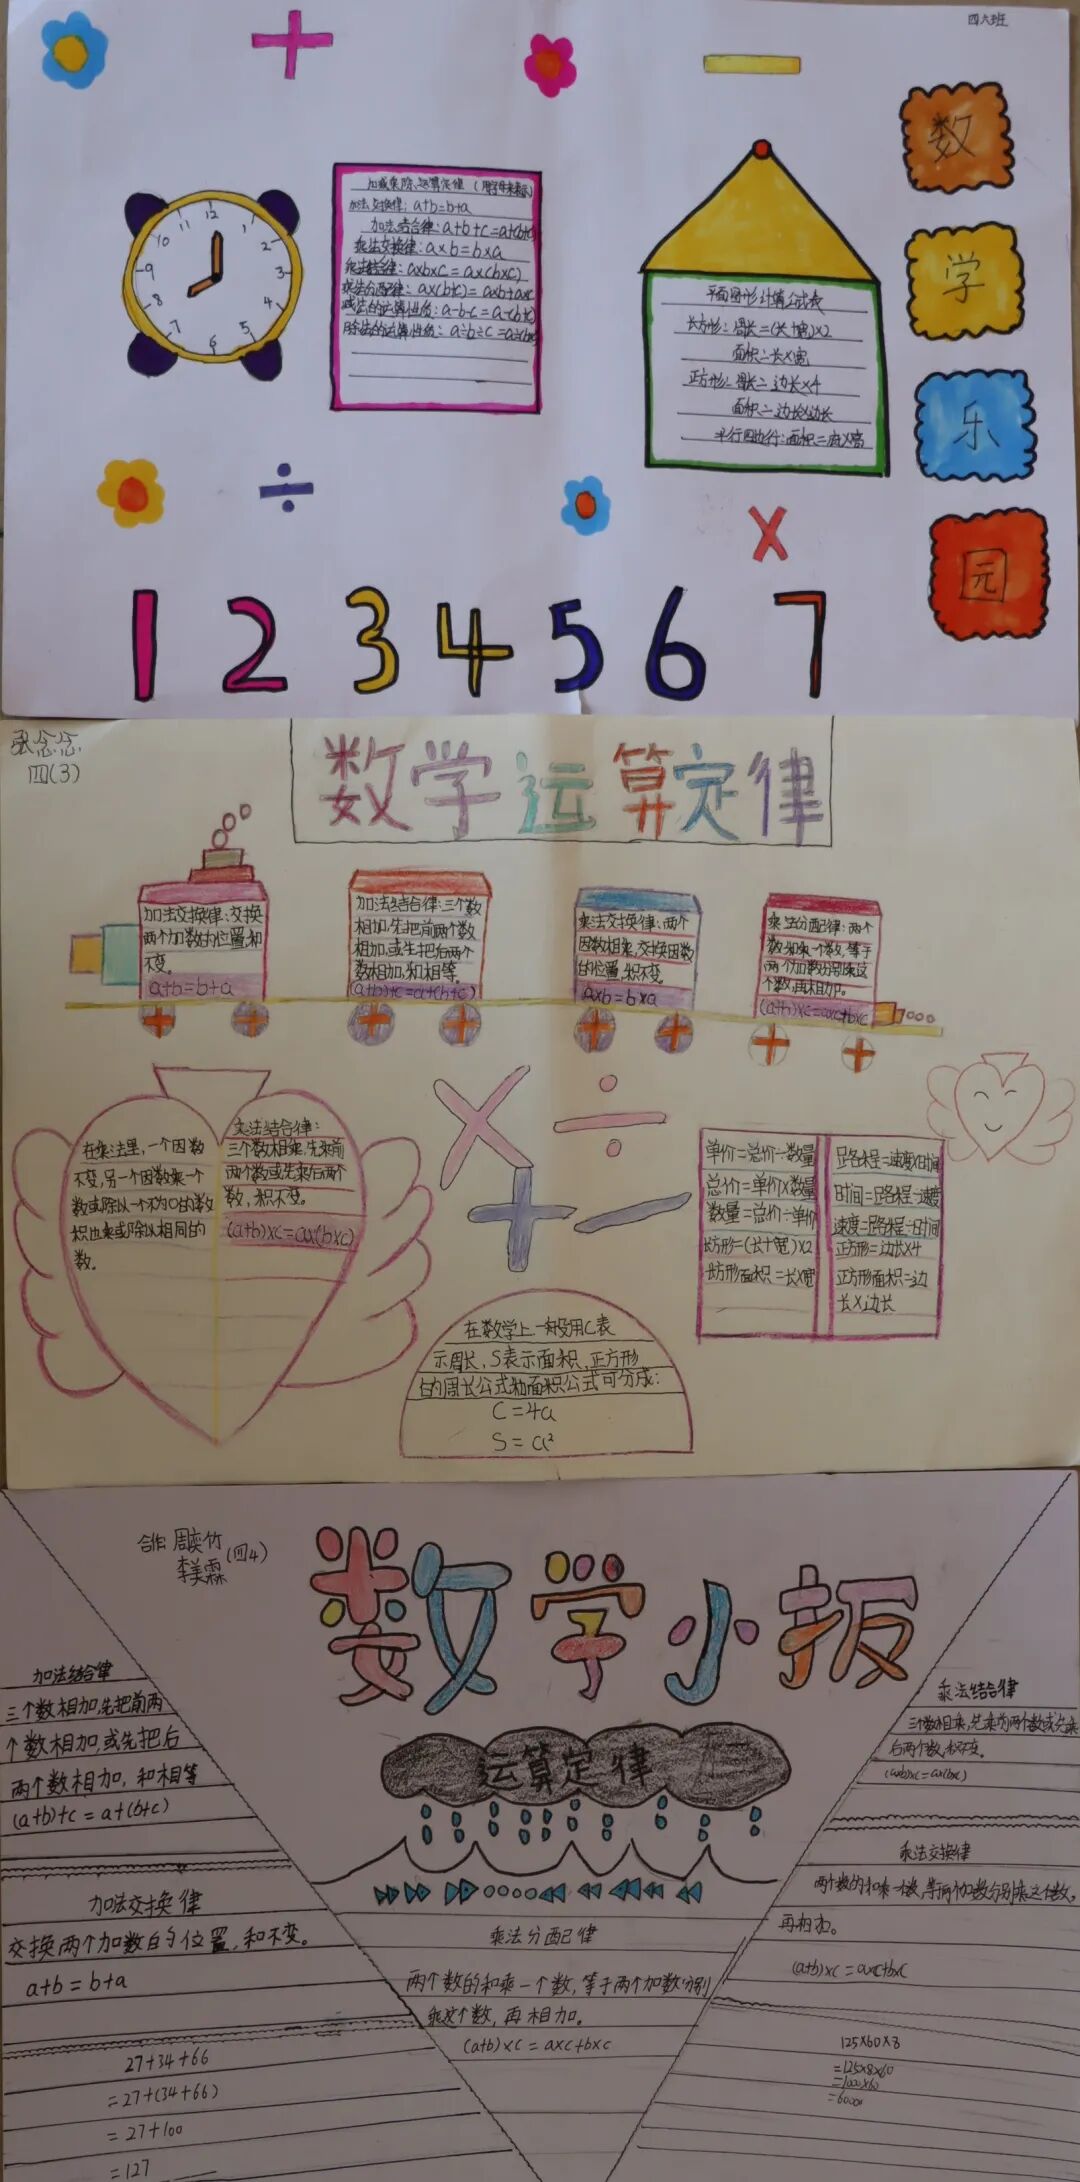 四六班
数
学
乐
园
12
11
1
10
2
9
3
8
4
7
5
6
加减乘除、运算定律（用字母来表示）
加法交换律：a+b=b+a
加法结合律：a+b+c=a+(b+c)
乘法交换律：a×b=b×a
乘法结合律：a×b×c=a×(b×c)
乘法分配律：a×(b+c)=a×b+a×c
减法的运算性质：a-b-c=a-(b+c)
除法的运算性质：a÷b÷c=a÷(b×c)
平面图形计算公式表
长方形：周长=(长+宽)×2
面积=长×宽
正方形=周长=边长×4
面积=边长×边长
平行四边行：面积=底×高
+
−
÷
×
1 2 3 4 5 6 7
张念念
四(3)
数学运算定律
加法交换律：交换
两个加数的位置，和
不变。
a+b=b+a
加法结合律：三个数
相加，先把前两个数
相加，或先把后两个
数相加，和相等。
(a+b)+c=a+(b+c)
乘法交换律：两个
因数相乘，交换因数
的位置，积不变。
a×b=b×a
乘法分配律：两个
数和乘一个数，等于
两个加数分别乘这
个数，再相加。
(a+b)×c=a×c+b×c
在乘法里，一个因数
不变，另一个因数乘一个
数或除以一个不为0的数
积也乘或除以相同的
数。
三个数相乘，先乘前
两个数或先乘后两个
数，积不变。
(a+b)×c=a×(b×c)
× ÷
+ −
单价=总价÷数量
总价=单价×数量
数量=总价÷单价
长方形=(长+宽)×2
长方形面积=长×宽
路程=速度×时间
时间=路程÷速度
速度=路程÷时间
正方形=边长×4
正方形面积=边
长×边长
在数学上一般用C表
示周长，S表示面积，正方形
的周长公式和面积公式可分成：
C=4a
S=a²
合作 周奕竹
李美霖 (四4)
数学小报
运算定律
加法结合律
三个数相加，先把前两
个数相加，或先把后
两个数相加，和相等
(a+b)+c=a+(b+c)
加法交换律
交换两个加数的位置，和不变。
a+b=b+a
27+34+66
=27+(34+66)
=27+100
=127
乘法分配律
两个数的和乘一个数，等于两个加数分别
乘这个数，再相加。
(a+b)×c=a×c+b×c
乘法结合律
三个数相乘，先乘前两个数或先乘
后两个数，积不变。
(a×b)×c=a×(b×c)
乘法交换律
两个数的和乘一个数，等于两个加数分别乘这个数，
再相加。
(a+b)×c=a×c+b×c
125×60×8
=125×8×60
=1000×60
=60000